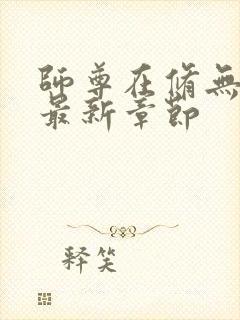 師尊在脩無
最新章節
释笑